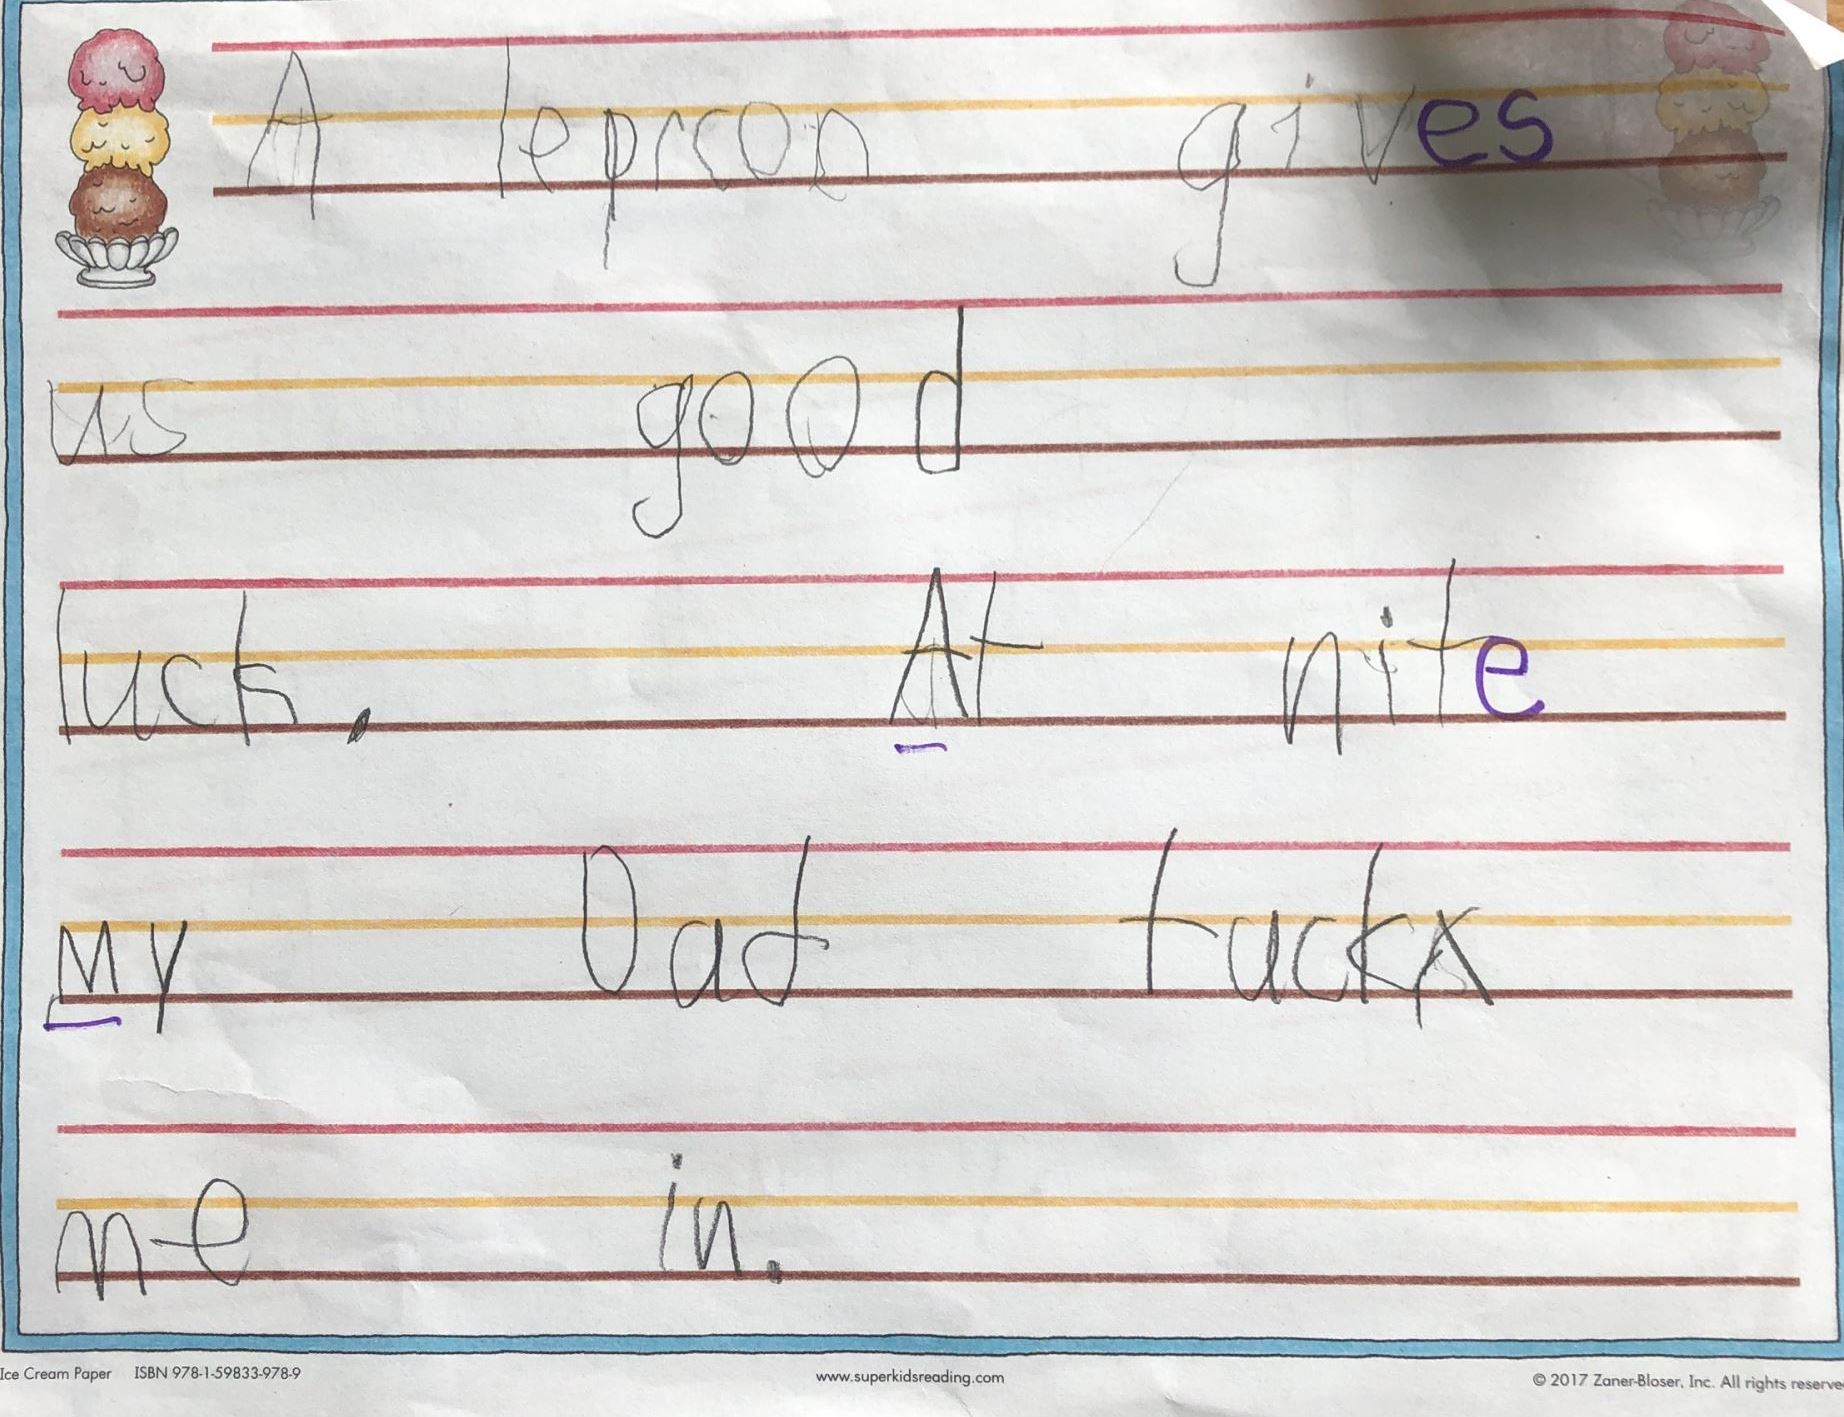 A leprcon gives
us good
luck. At nite
My Dad tuckx
me in.
Ice Cream Paper ISBN 978-1-59833-978-9 www.superkidsreading.com © 2017 Zaner-Bloser, Inc. All rights reserve